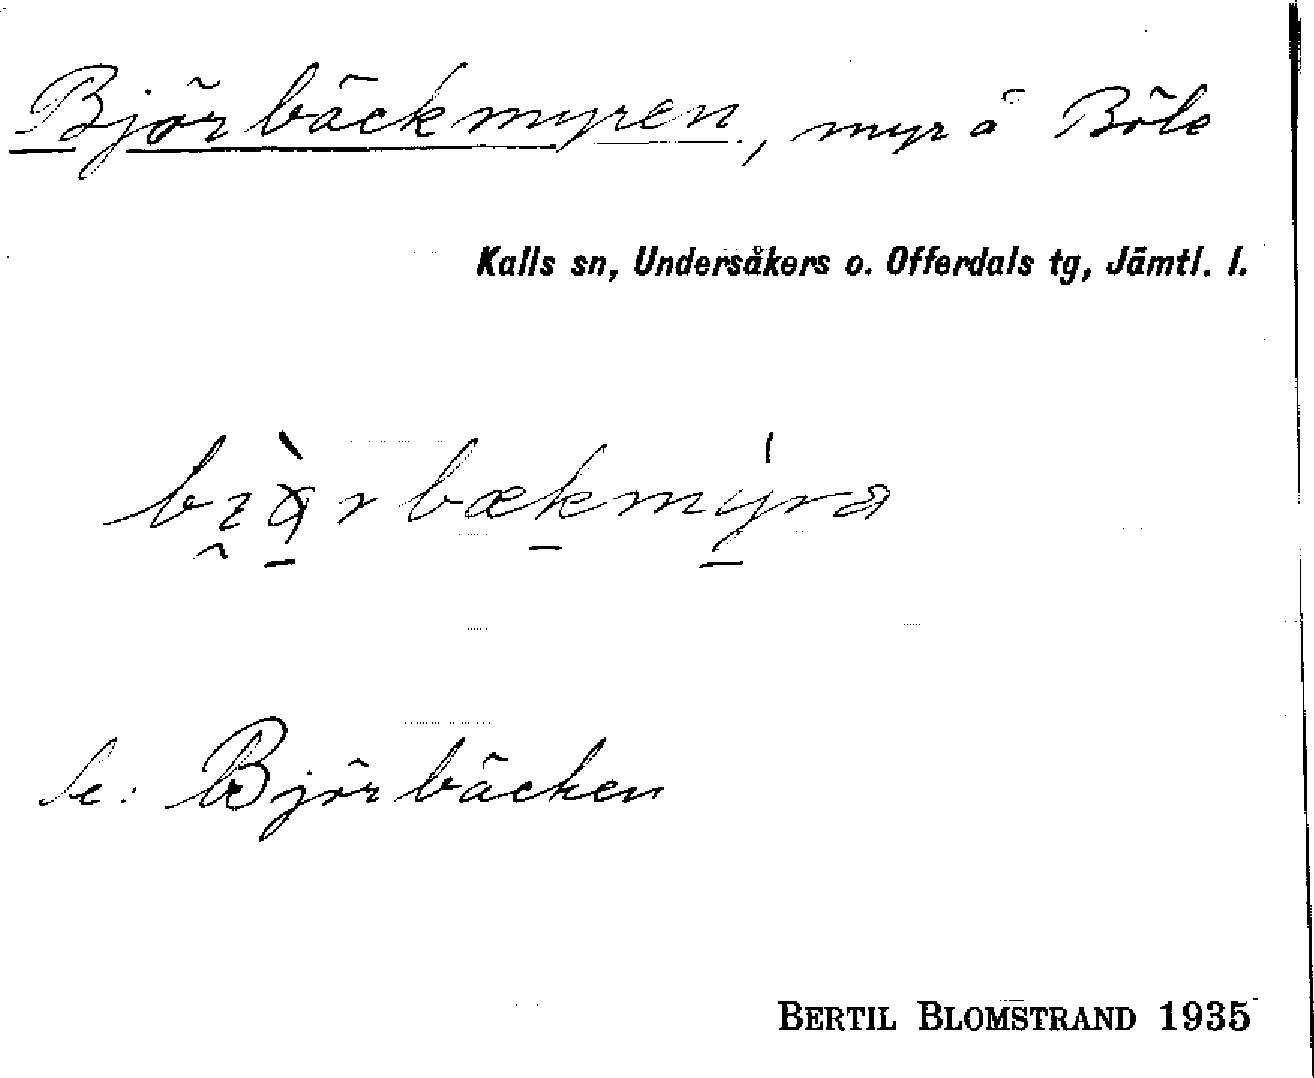 Björbäckmyren, myr å Böle
Kalls sn, Undersåkers o. Offerdals tg, Jämtl. l.
se: Björbäcken
BERTIL BLOMSTRAND 1935